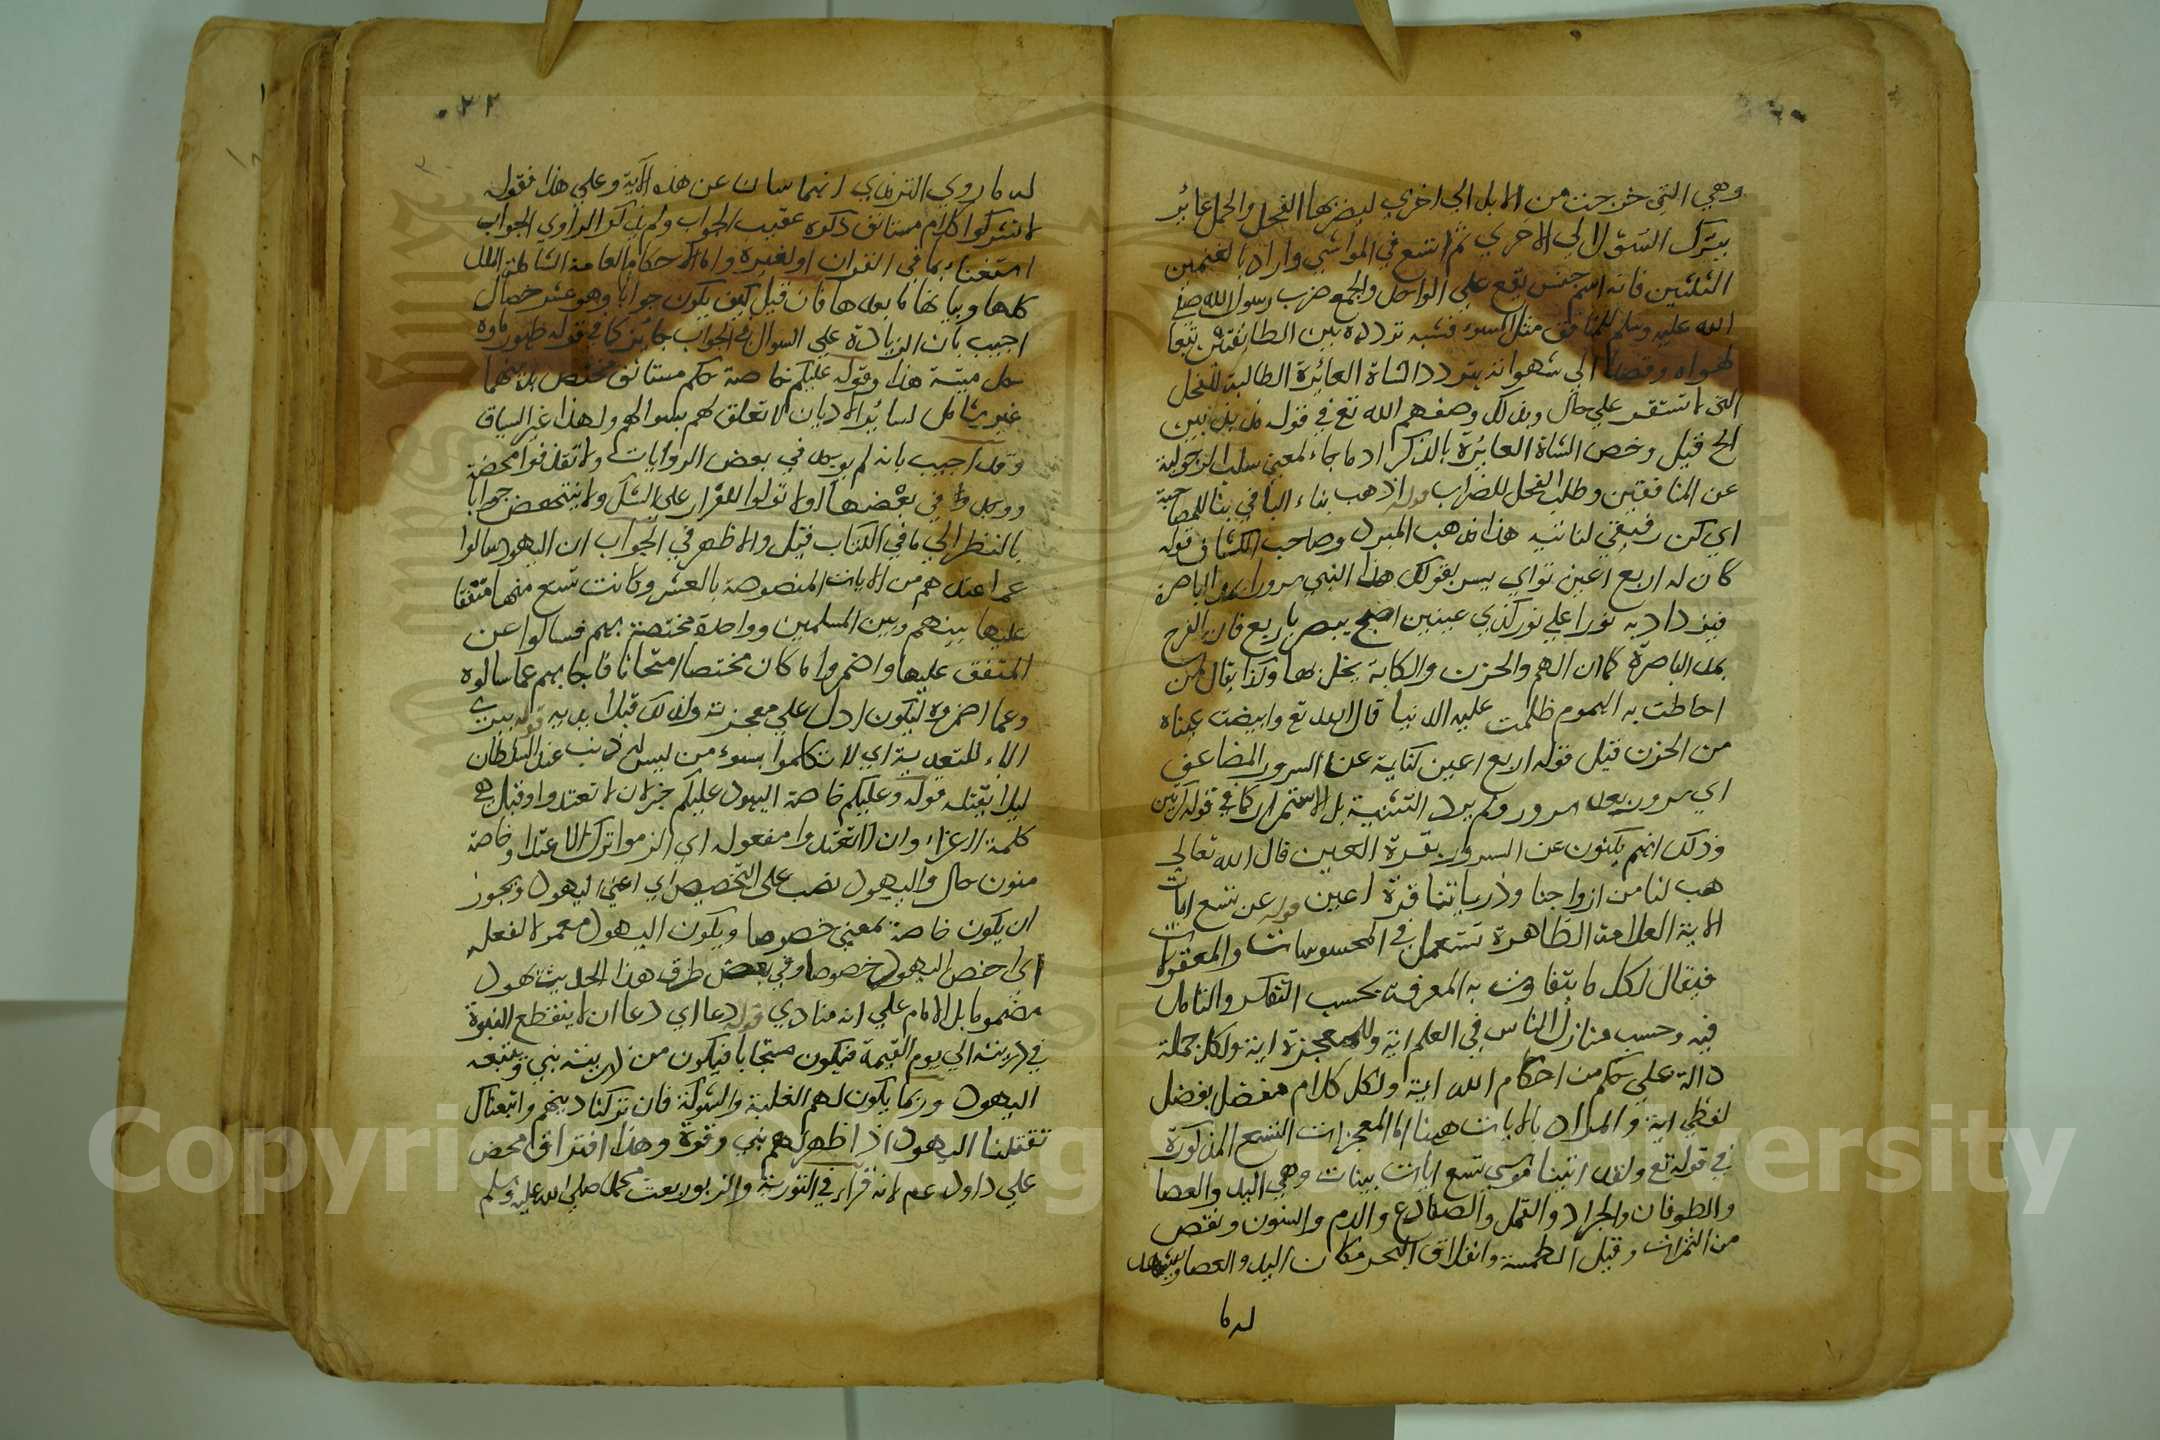 وهي التي خرجت من الابل الي اخري ليضربها الفحل والجمل عائر
يترك الشول الي الاخري ثم اتسع في المواشي واراد بالغنمين
الثلتين فانه اسم جنس يقع علي الواحد والجمع ضرب رسول الله صلي
الله عليه وسلم للمنافق مثل السوء فشبه تردده بين الطائفتين تبعا
لهواه وقصدا الي شهواته بتردد الشاة العائرة الطالبة للفحل
التي لا تستقر علي حال وبذلك وصفهم الله تع في قوله مذبذبين
الخ قيل وخص الشاة العائرة بالذكر ادماجا لمعني سلب الرجولية
عن المنافقين وطلب الفحل للضراب قوله اذهب بناء الباء في بنا للمصاحبة
اي كن رفيقي لناتيه هذا مذهب المبرد وصاحب الكشاف قوله
كان له اربع اعين تواي يسر بقولك هذا النبي سرورا يمد الباصرة
فيزداد به نورا علي نور كذي عينين اصبح يبصر باربع فان الفرح
يمد الباصرة كما ان الهم والحزن والكابة يخل بها ولذا يقال من
احاطت به الهموم ظلمت عليه الدنيا قال الله تع وابيضت عيناه
من الحزن قيل قوله اربع اعين كناية عن السرور المضاعف
اي سرور بعد سرور ولم يرد التثنية بل الاستمرار كما في قوله كرتين
وذلك انهم يكنون عن السرور بقرة العين قال الله تعالي
هب لنا من ازواجنا وذرياتنا قرة اعين قوله عن تسع ايات
الاية العلامة الظاهرة تستعمل في المحسوسات والمعقولات
فيقال لكل ما يتفاوت به المعرفة بحسب التفكر والتامل
فيه وحسب منازل الناس في العلم اية وللمعجزة اية ولكل جملة
دالة علي حكم من احكام الله اية ولكل كلام منفصل بفصل
لفظي اية والمراد بالايات ههنا اما المعجزات التسع المذكورة
في قوله تع ولقد اتينا موسي تسع ايات بينات وهي اليد والعصا
والطوفان والجراد والقمل والضفادع والدم والسنون ونقص
من الثمرات وقيل الطمسة وانفلاق البحر مكان اليد والعصا ويشهد
له ما
٠٢٢
له ما روي الترمذي انهما سالا عن هذه الاية وعلي هذا فقوله
لا تشركوا كلام مستانف ذكره عقيب الجواب ولم يذكر الراوي الجواب
استغناء بما في القران او لغيره واما الاحكام العامة الشاملة للملل
كلها وبيانها ما بعدها فان قيل كيف يكون جوابا وهو عشر خصال
اجيب بان الزيادة علي السوال في الجواب جائز كما في قوله طهور ماوه
حل ميتة هذا وقوله عليكم خاصة حكم مستانف مختص بدينهما
غير شامل لسائر الاديان لا تعلق لهم بسوالهم ولهذا غير السياق
وقد اجيب بانه لم يوجد في بعض الروايات ولا تقذفوا محصنة
ووجد في بعضها او لا تولوا للفرار علي الشك ولا يتمحض جوابا
بالنظر الي ما في الكتاب قيل والاظهر في الجواب ان اليهود سالوا
عما عندهم من الايات المنصوصة بالعشر وكانت تسع منها متفقا
عليها بينهم وبين المسلمين وواحدة مختصة بهم فسالوا عن
المتفق عليها واضمروا ما كان مختصا امتحانا فاجابهم عما سالوه
وعما اضمروه ليكون ادل علي معجزته ولذلك قبلا يديه قوله ببري
الباء للتعدية اي لا تتكلموا بسوء من ليس له ذنب عند السلطان
ليلا يقتله قوله وعليكم خاصة اليهود عليكم خبر لان لا تعتدوا وقيل هي
كلمة الاغراء وان لا تعتدوا مفعوله اي الزموا ترك الاعتدا وخاصة
منون حال واليهود نصب علي التخصيص اي اعني اليهود ويجوز
ان يكون خاصة بمعني خصوصا ويكون اليهود معمولا لفعله
اي اخص اليهود خصوصا وفي بعض طرق هذا الحديث يهود
مضموما بلا لام علي انه منادي قوله دعا اي دعا ان لا ينقطع النبوة
في ذريته الي يوم القيمة فيكون مستجابا فيكون من ذريته نبي ويتبعه
اليهود وربما يكون لهم الغلبة والشوكة فان تركنا دينهم واتبعناك
تقتلنا اليهود اذا ظهر لهم نبي وقوة وهذا افتراق محض
علي داود عم لانه قرأ في التورية والزبور بعث محمد صلي الله عليه وسلم
Copyright © King Saud University